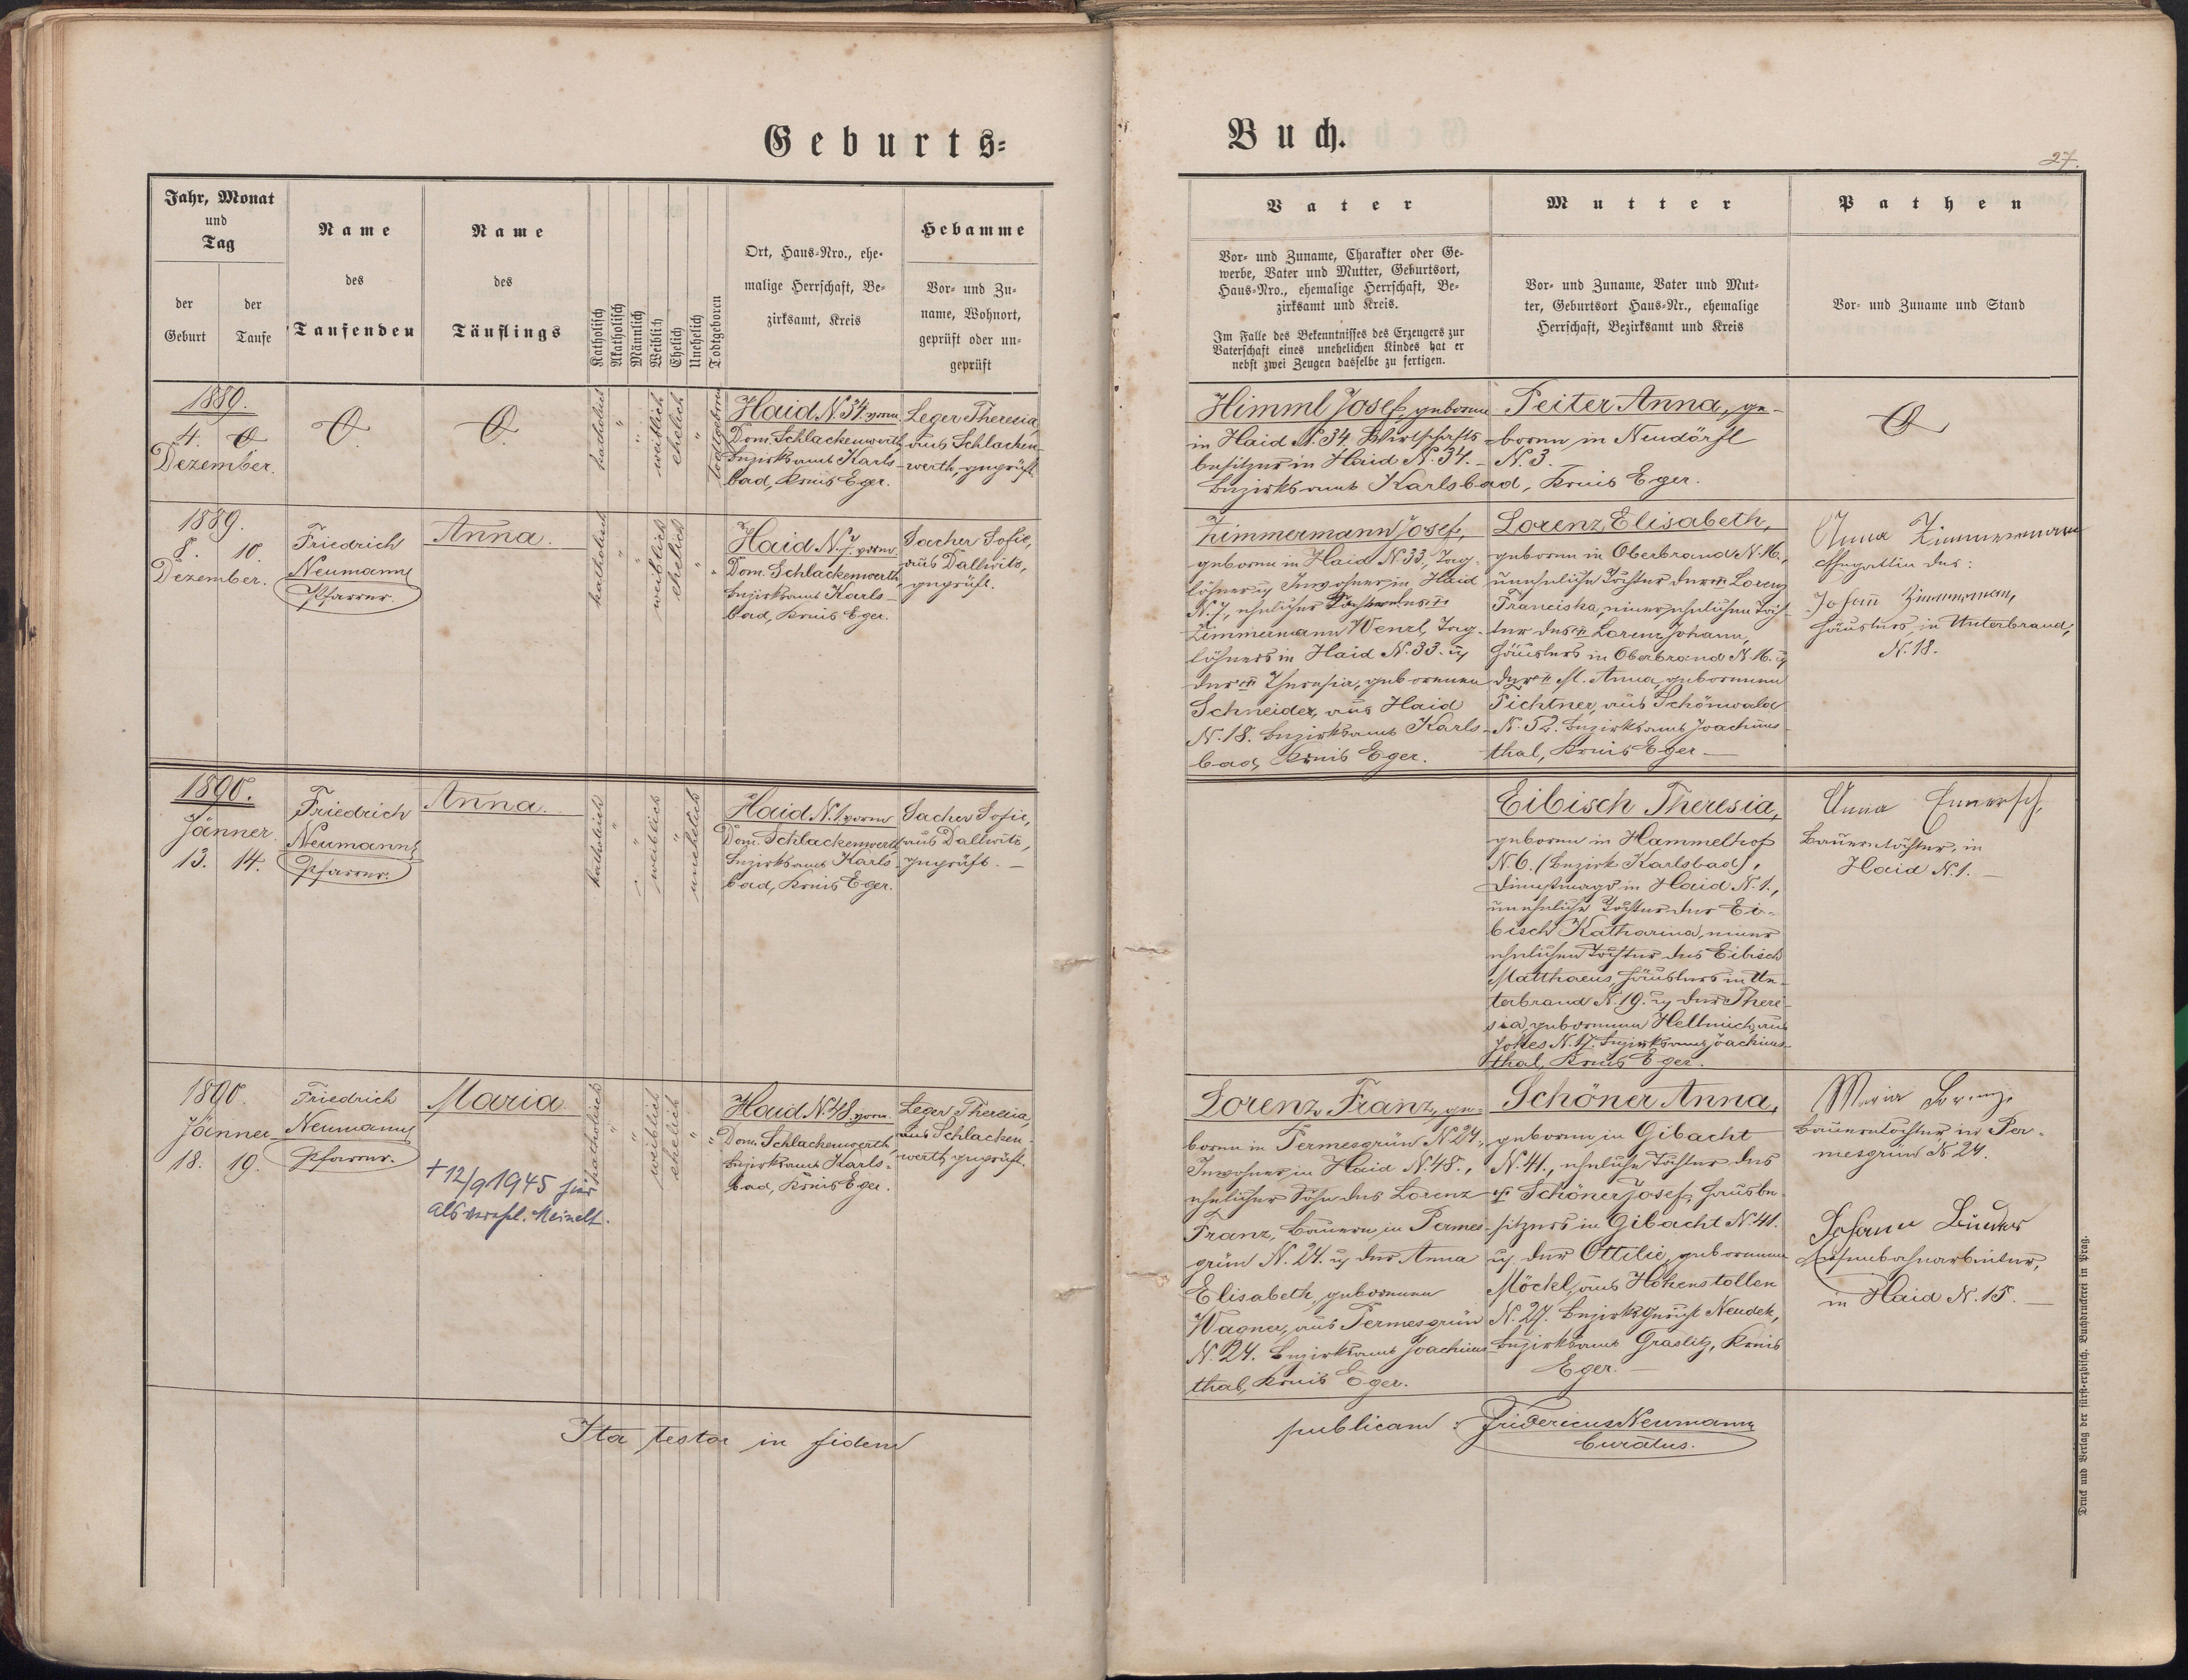 Geburts=
Jahr, Monat
und
Tag
der
Geburt
der
Taufe
Name
des
Taufenden
Name
des
Täuflings
Katholisch
Akatholisch
Männlich
Weiblich
Ehelich
Unehelich
Todtgeboren
Ort, Haus=Nro., ehe=
malige Herrschaft, Be=
zirksamt, Kreis
Hebamme
Vor= und Zu=
name, Wohnort,
geprüft oder un=
geprüft
1889.
4.
Dezember.
katholisch
"
"
weiblich
ehelich
"
todtgeboren
Haid N. 34. vorm.
Dom. Schlackenwerth,
Bezirksamt Karls-
bad, Kreis Eger.
Leger Theresia,
aus Schlacken-
werth, geprüft.
1889.
8. 10.
Dezember.
Friedrich
Neumann,
Pfarrer.
Anna.
katholisch
"
"
weiblich
ehelich
"
"
Haid N. 7. vorm.
Dom. Schlackenwerth
Bezirksamt Karls-
bad, Kreis Eger.
Sacher Sofie,
aus Dallwitz,
geprüft.
1890.
Jänner.
13. 14.
Friedrich
Neumann,
Pfarrer.
Anna.
katholisch
"
"
weiblich
"
unehelich
Haid N. 1. vorm
Dom. Schlackenwerth
Bezirksamt Karls-
bad, Kreis Eger.
Sacher Sofie,
aus Dallwitz,
geprüft. —
1890.
Jänner
18. 19.
Friedrich
Neumann,
Pfarrer.
Maria.
+ 12/9 1945 hier
als verehl. Meinelt.
katholisch
"
"
weiblich
ehelich
"
"
Haid N. 48. vorm.
Dom. Schlackenwerth,
Bezirksamt Karls-
bad, Kreis Eger.
Leger Theresia,
aus Schlacken-
werth, geprüft.
Ita testor in fidem
Buch.
27.
Vater
Vor= und Zuname, Charakter oder Ge=
werbe, Vater und Mutter, Geburtsort,
Haus=Nro., ehemalige Herrschaft, Be=
zirksamt und Kreis.
Im Falle des Bekenntnisses des Erzeugers zur
Vaterschaft eines unehelichen Kindes hat er
nebst zwei Zeugen dasselbe zu fertigen.
Mutter
Vor= und Zuname, Vater und Mut=
ter, Geburtsort Haus=Nr., ehemalige
Herrschaft, Bezirksamt und Kreis
Pathen
Vor= und Zuname und Stand
Himml Josef, geboren
in Haid N. 34. Wirtschafts-
besitzer in Haid N. 34. —
Bezirksamt Karlsbad, Kreis Eger.
Peiter Anna, ge-
boren in Neudörfl
N. 3.
Zimmermann Josef,
geboren in Haid N. 33., Tag-
löhner u. Inwohner in Haid
N. 7, ehelicher des
Zimmermann Wenzl, Tag-
löhners in Haid N. 33. u.
der Theresia, geborenen
Schneider, aus Haid
N. 18. Bezirksamt Karls-
bad, Kreis Eger.
Lorenz Elisabeth,
geboren in Oberbrand N. 16.,
uneheliche Tochter der Lorenz
Franciska, einer ehelichen Toch-
ter des Lorenz Johann,
Häuslers in Oberbrand N. 16. u.
der M. Anna, geborenen
Pichtner, aus Schönwald
N. 52. Bezirksamt Joachims-
thal, Kreis Eger —
Anna Zimmermann
Ehegattin des:
Johann Zimmermann,
Häuslers in Unterbrand,
N. 18.
Eibisch Theresia,
geboren in Hammelhof
N. 6. (Bezirk Karlsbad),
Dienstmagd in Haid N. 1.,
uneheliche Tochter der Ei-
bisch Katharina, einer
ehelichen Tochter des Eibisch
Matthaeus, Häuslers in Un-
terbrand N. 19. u. der There-
sia, geborenen Hellmich, aus
Jokes N. 17. Bezirksamt Joachims-
thal, Kreis Eger.
Anna
Bauerntochter, in
Haid N. 1. —
Lorenz Franz, ge-
boren in Permesgrün N. 24.,
Inwohner in Haid N. 48.,
ehelicher Sohn des Lorenz
Franz, Bauern in Permes-
grün N. 24. u. der Anna
Elisabeth, geborenen
Wagner, aus Permesgrün
N. 24. Bezirksamt Joachims-
thal, Kreis Eger.
Schöner Anna,
geboren in Gibacht
N. 41., eheliche Tochter des
Schöner Josef, Hausbe-
sitzers in Gibacht N. 41.
u. der Ottilie, geborenen
Möckel, aus Hohenstollen
N. 27. Bezirksgericht Neudek,
Bezirksamt Graslitz, Kreis
Eger. —
Maria Lorenz,
Bauerntochter in Per-
mesgrün N. 24.
Johann
Eisenbahnarbeiter,
in Haid N. 15. —
publicam: Fridericus Neumann
Curatus.
Druck und Verlag der fürst=erzbisch. Buchdruckerei in Prag.